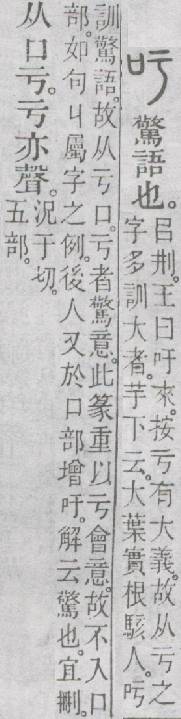 吁驚語也。
呂㓝。王曰吁來。按亏有大義。故从亏之
字多訓大者。芋下云。大葉實根駭人。吁
訓驚語。故从亏口。亏者驚意。此篆重以亏會意。故不入口
部。如句丩屬字之例。後人又於口部增吁。解云驚也。宜刪。
从口亏。亏亦聲。
況于切。
五部。